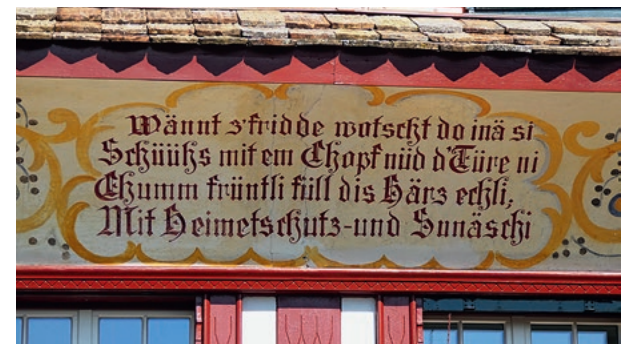 Wännt z'fridde wotscht do inä si
Schüühs mit em Chopf nüd d'Türe ni
Chumm früntli füll dis Härz echli,
Mit Heimetschutz-und Sunäschi